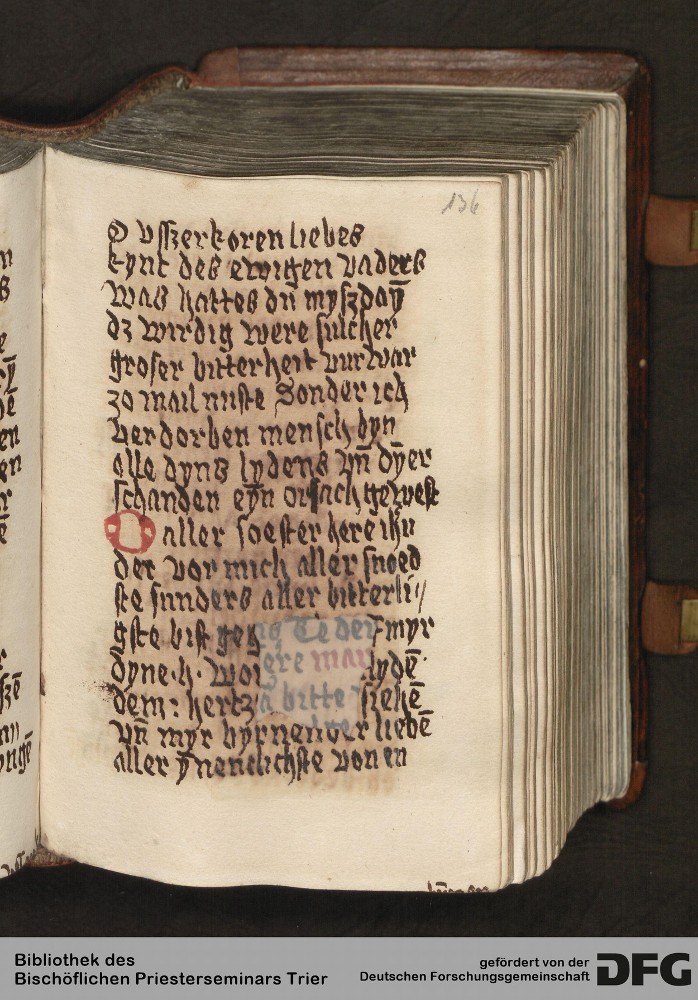 136
O vsszerkoren liebes
kynt des ewigen vaders
Was hattes du myszdaȳ
dz wirdig were sulcher
groser bitterheit vurwar
zo mail niiste Sonder ich
verdorben mensch byn
alle dyns lydens vn̄ dȳer
schanden eyn orsach gewest
O aller soester here ihu
der vor mich aller snoed
ste sunders aller bitterli〃
gste bist myr
dyne · h · lydē
dem : hertz siehē
vn̄ myr byrnender liebē
aller ȳnenclichste von en
Bibliothek des
Bischöflichen Priesterseminars Trier
gefördert von der
Deutschen Forschungsgemeinschaft
DFG